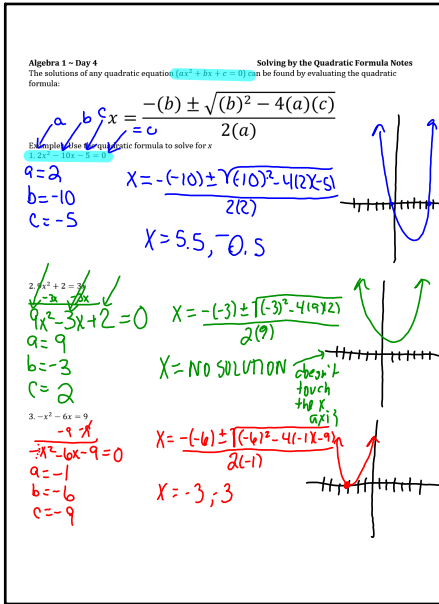 Algebra 1 ~ Day 4 Solving by the Quadratic Formula Notes
The solutions of any quadratic equation (ax² + bx + c = 0) can be found by evaluating the quadratic
formula:
a b c x = −(b) ± √(b)² − 4(a)(c) / 2(a)
= 0
Examples: Use the quadratic formula to solve for x
1. 2x² − 10x − 5 = 0
a = 2
b = -10
c = -5
x = -(-10) ± √(-10)² - 4(2)(-5) / 2(2)
x = 5.5, -0.5
2. 9x² + 2 = 3x
-3x -3x
9x² - 3x + 2 = 0
a = 9
b = -3
c = 2
x = -(-3) ± √(-3)² - 4(9)(2) / 2(9)
x = NO SOLUTION
doesn't
touch
the x
axis
3. −x² − 6x = 9
-9 -9
-x² - 6x - 9 = 0
a = -1
b = -6
c = -9
x = -(-6) ± √(-6)² - 4(-1)(-9) / 2(-1)
x = -3, -3